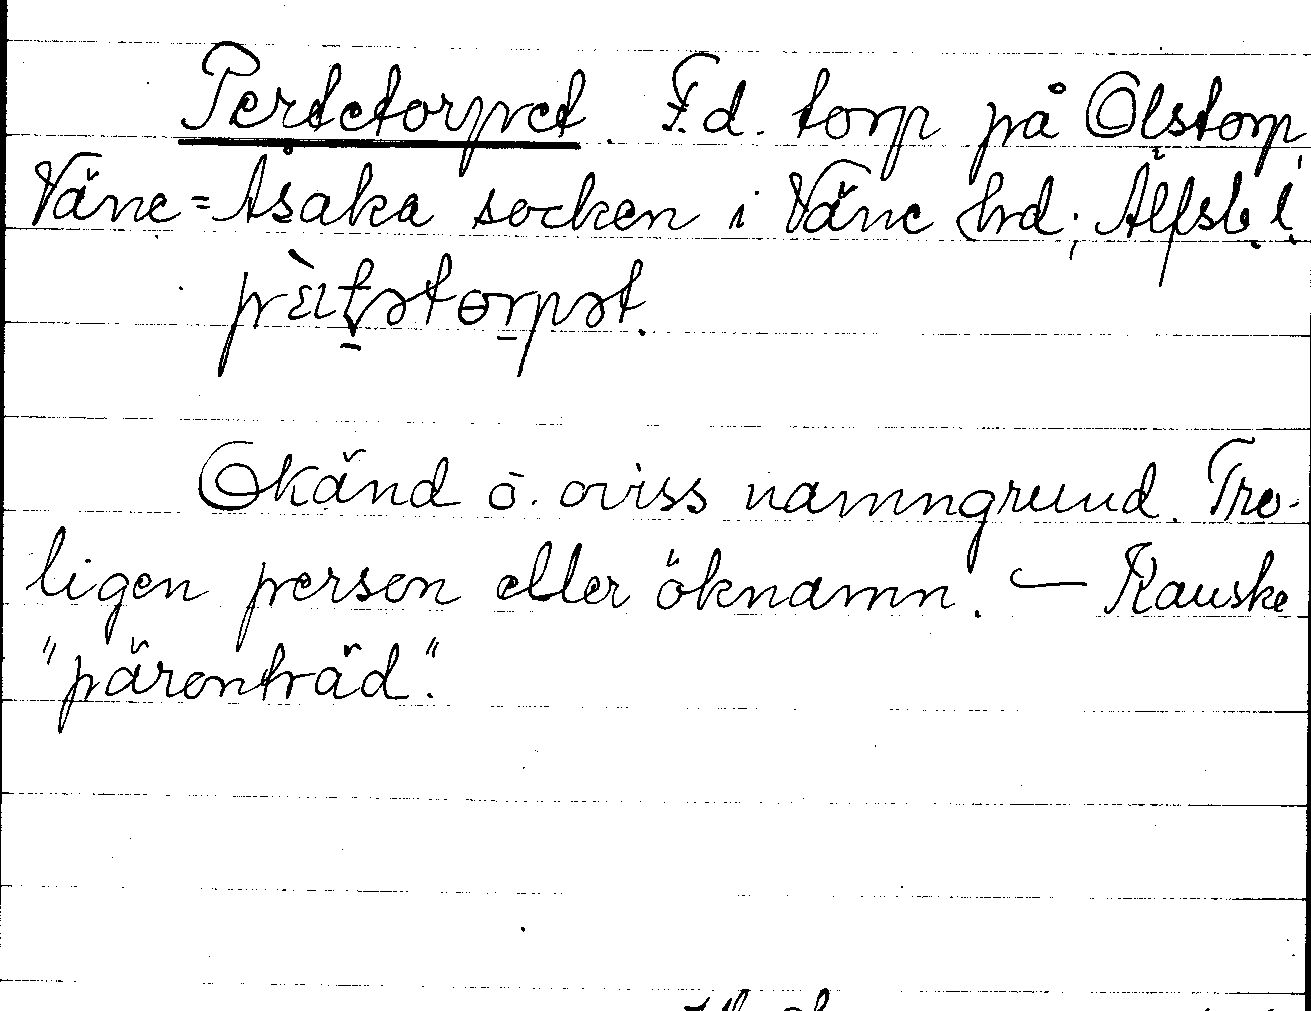 Pertetorpet. F.d. torp på Olstorp,
Väne=Åsaka socken i Väne hrd; Älfsb. l.
Okänd o. oviss namngrund. Tro-
ligen person eller öknamn. — Kanske
"pärenträd".